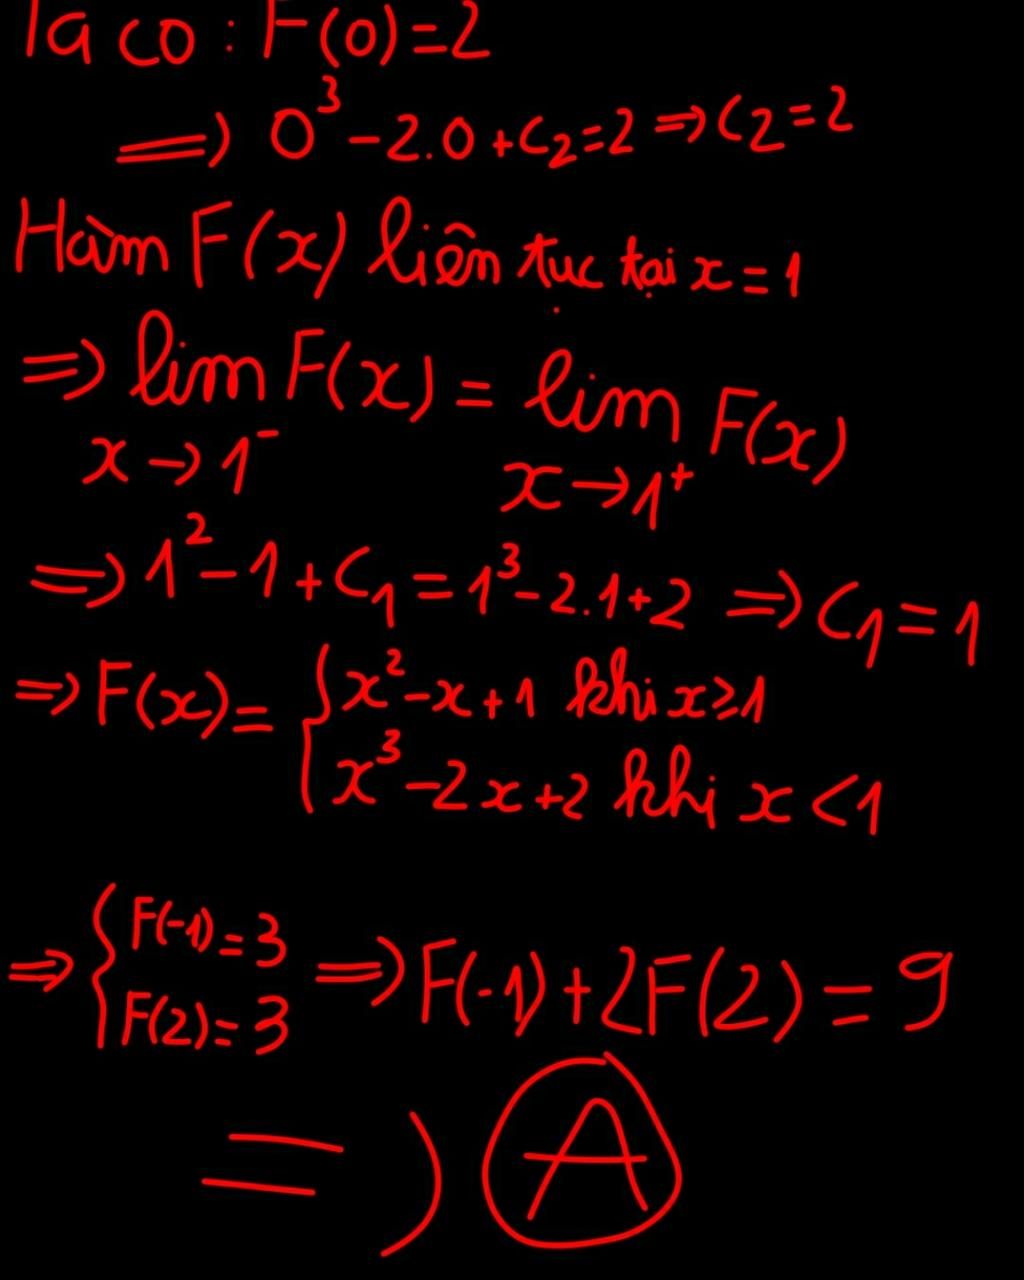 Ta có : F(0)=2
=> 0³ - 2.0 + C₂ = 2 => C₂ = 2
Hàm F(x) liên tục tại x = 1
=> lim F(x) = lim F(x)
x → 1⁻ x → 1⁺
=> 1² - 1 + C₁ = 1³ - 2.1 + 2 => C₁ = 1
=> F(x) = { x² - x + 1 khi x ≥ 1
x³ - 2x + 2 khi x < 1
=> { F(-1) = 3
F(2) = 3 => F(-1) + 2F(2) = 9
=> A